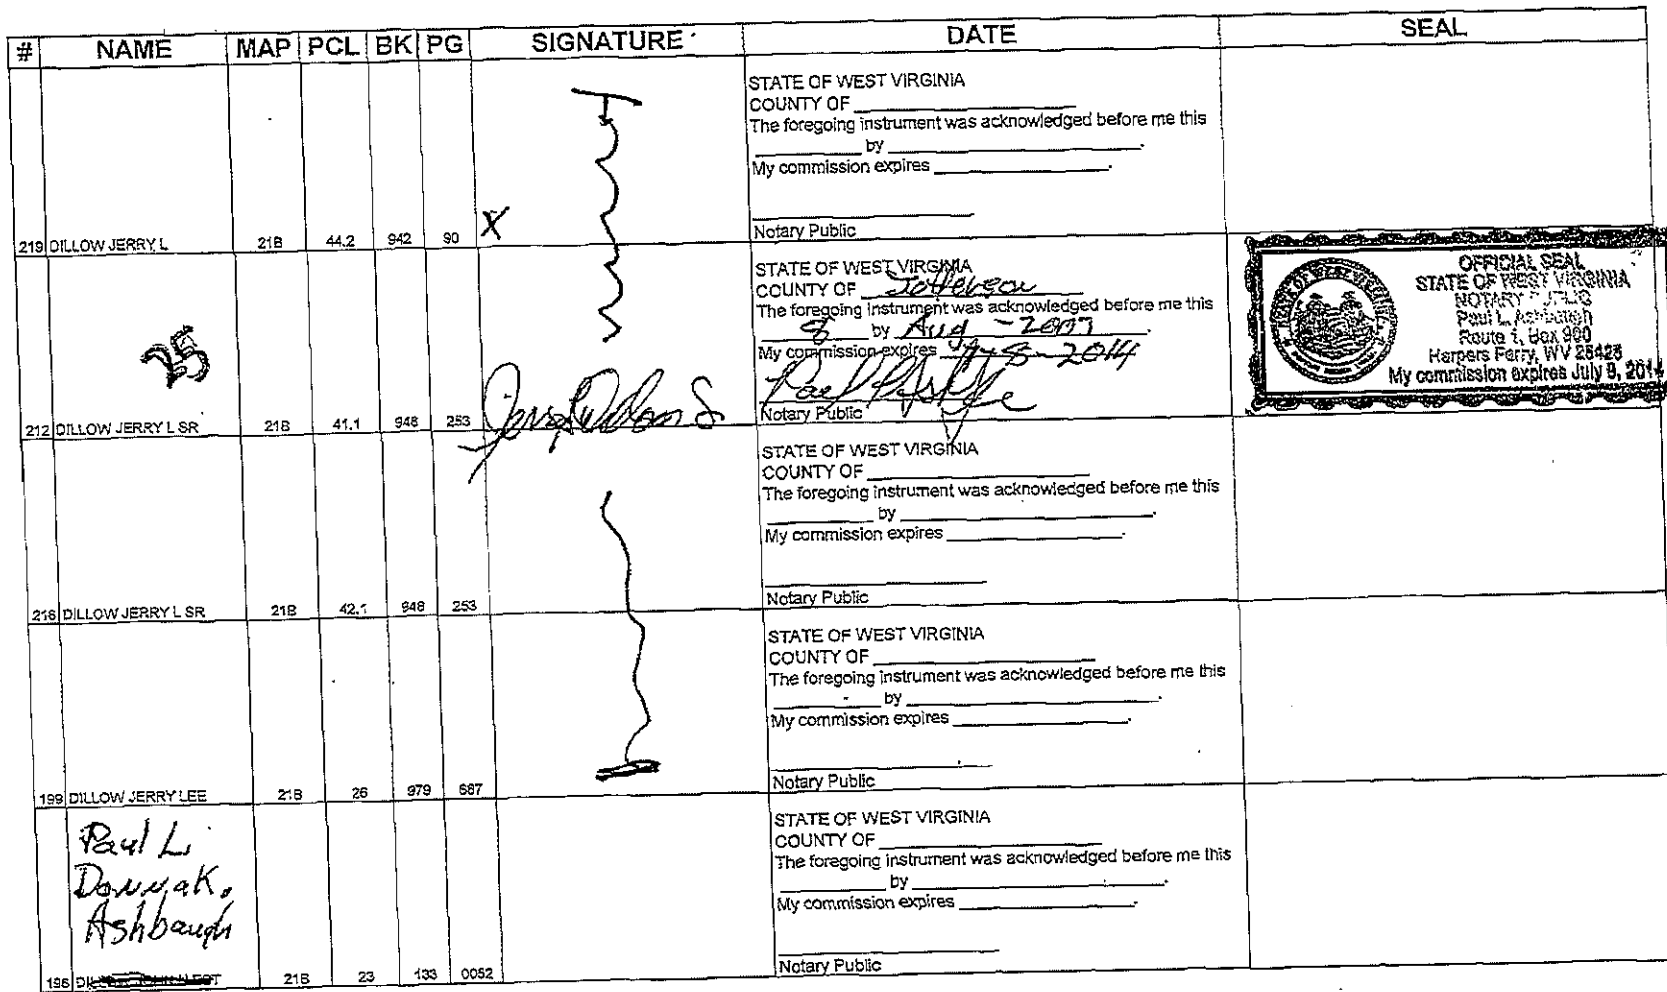 # NAME MAP PCL BK PG SIGNATURE DATE SEAL
STATE OF WEST VIRGINIA
COUNTY OF
The foregoing instrument was acknowledged before me this
by
My commission expires
X
Notary Public
219 DILLOW JERRY L 21B 44.2 942 90
STATE OF WEST VIRGINIA
COUNTY OF Jefferson
The foregoing instrument was acknowledged before me this
8 by Aug - 2007
My commission expires 8-2014
Notary Public
25
212 DILLOW JERRY L SR 21B 41.1 948 253
OFFICIAL SEAL
STATE OF WEST VIRGINIA
NOTARY PUBLIC
Paul L. Ashbaugh
Route 1, Box 900
Harpers Ferry, WV 25425
My commission expires July 8, 2014
STATE OF WEST VIRGINIA
COUNTY OF
The foregoing instrument was acknowledged before me this
by
My commission expires
Notary Public
218 DILLOW JERRY L SR 21B 42.1 948 253
STATE OF WEST VIRGINIA
COUNTY OF
The foregoing instrument was acknowledged before me this
by
My commission expires
Notary Public
199 DILLOW JERRY LEE 21B 26 979 687
Paul L.
Donna K.
Ashbaugh
STATE OF WEST VIRGINIA
COUNTY OF
The foregoing instrument was acknowledged before me this
by
My commission expires
Notary Public
196 21B 23 133 0052